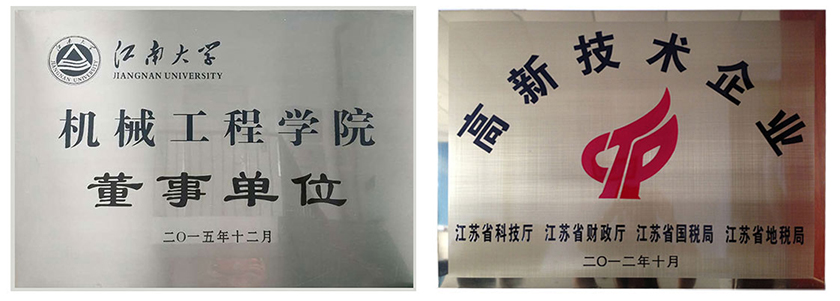 江南大学
JIANGNAN UNIVERSITY
机械工程学院
董事单位
二〇一五年十二月
高新技术企业
江苏省科技厅 江苏省财政厅 江苏省国税局 江苏省地税局
二〇一二年十月